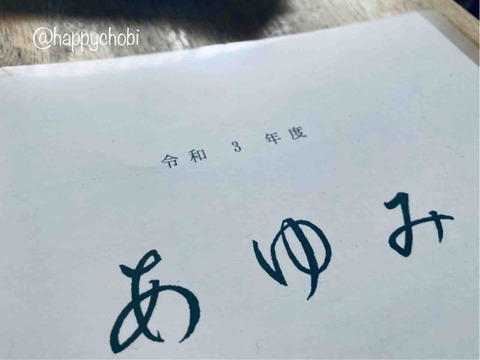 @happychobi
令和 3 年度
あゆみ